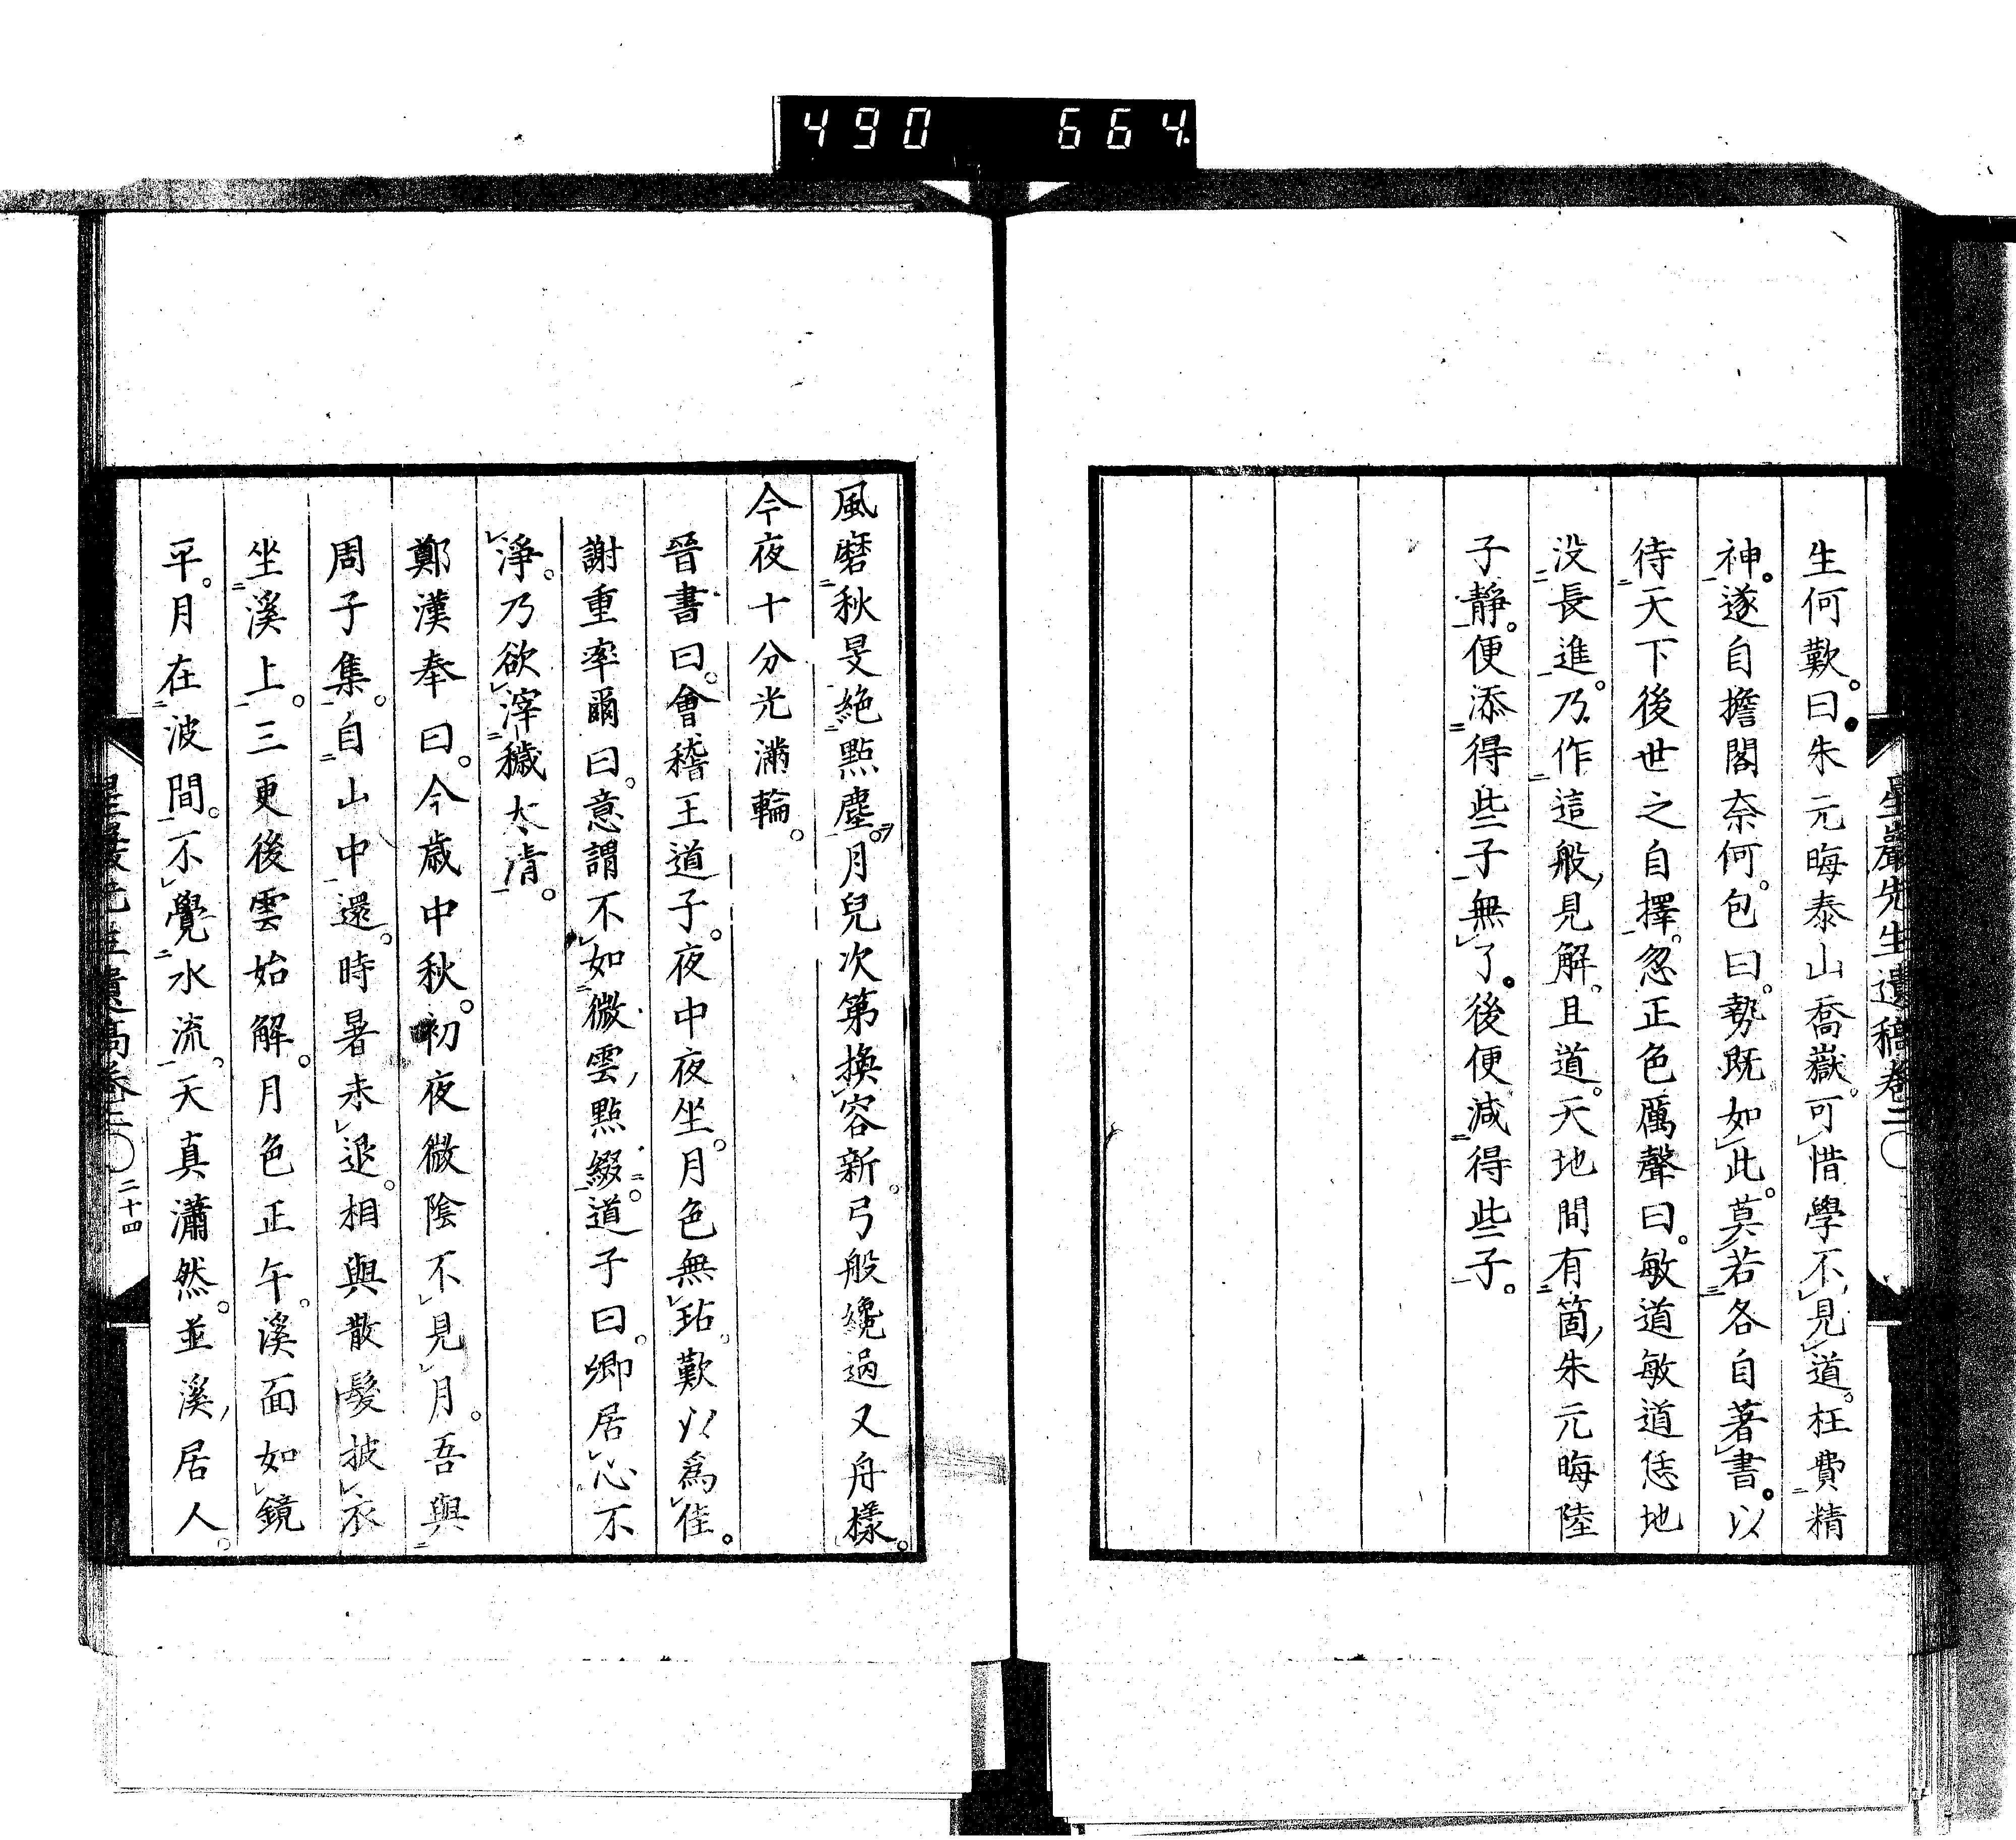 490 664
星巖先生遺稿卷二
生何歎。曰。朱元晦泰山喬嶽。可惜學不見道。枉費精
神。遂自擔閣奈何。包曰。勢既如此。莫若各自著書。以
待天下後世之自擇。忽正色厲聲曰。敏道敏道恁地
没長進。乃作這般見解。且道。天地間有箇朱元晦陸
子靜。便添得些子無了。後便減得些子。
風磨秋旻絶點塵。月兒次第換容新。弓般纔過又舟樣。
今夜十分光滿輪。
晉書曰。會稽王道子。夜中夜坐。月色無玷。歎以爲佳。
謝重率爾曰。意謂不如微雲點綴。道子曰。卿居心不
淨。乃欲滓穢太淸。
鄭漢奉曰。今歲中秋。初夜微陰不見月。吾與
周子集。自山中還。時暑未退。相與散髮披衣
坐溪上。三更後雲始解。月色正午。溪面如鏡
平。月在波間。不覺水流。天真瀟然。並溪居人。
星巖先生遺稿卷二
二十四